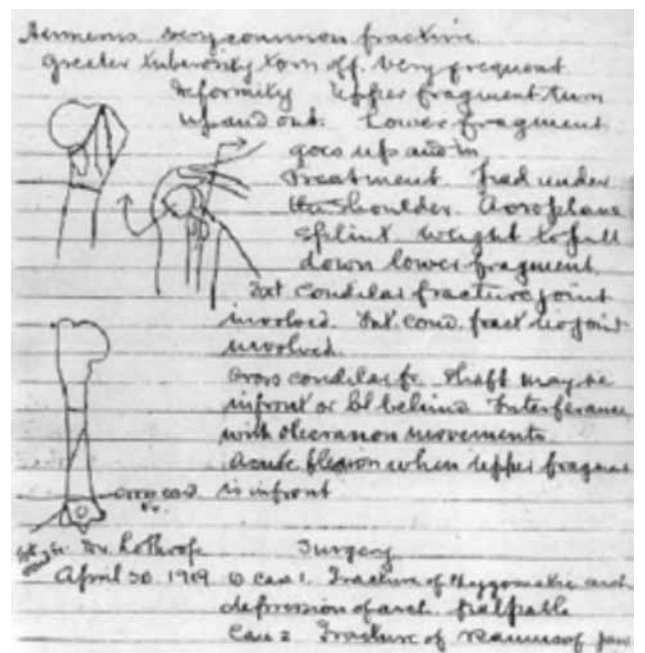 Humerus very common fracture.
Greater tuberosity torn off. Very frequent
Deformity Upper fragment turn
up and out. Lower fragment
goes up and in
Treatment. Pad under
the shoulder. Aeroplane
Splint. Weight to pull
down lower fragment.
Ext condilar fracture joint
involved. Int. cond. fract no joint
involved.
Cross condilar fr. Shaft may be
infront or behind Interferance
with olecranon movements.
Acute flexion when upper fragment
is infront
cross cond.
fr.
Dr. Lothrop Surgery
April 30 1919 Case 1. Fracture of Zygomatic arch
depression of arch. palpable
Case 2 Fracture of Ramus of jaw